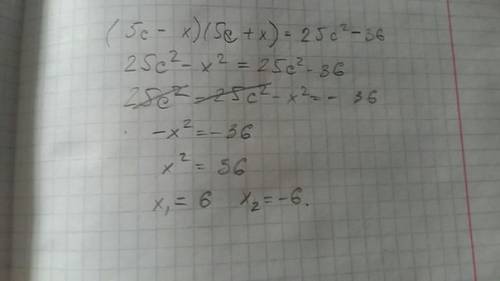 (5c - x)(5c + x) = 25c² - 36
25c² - x² = 25c² - 36
25c² - 25c² - x² = - 36
-x² = -36
x² = 36
x₁ = 6 x₂ = -6.